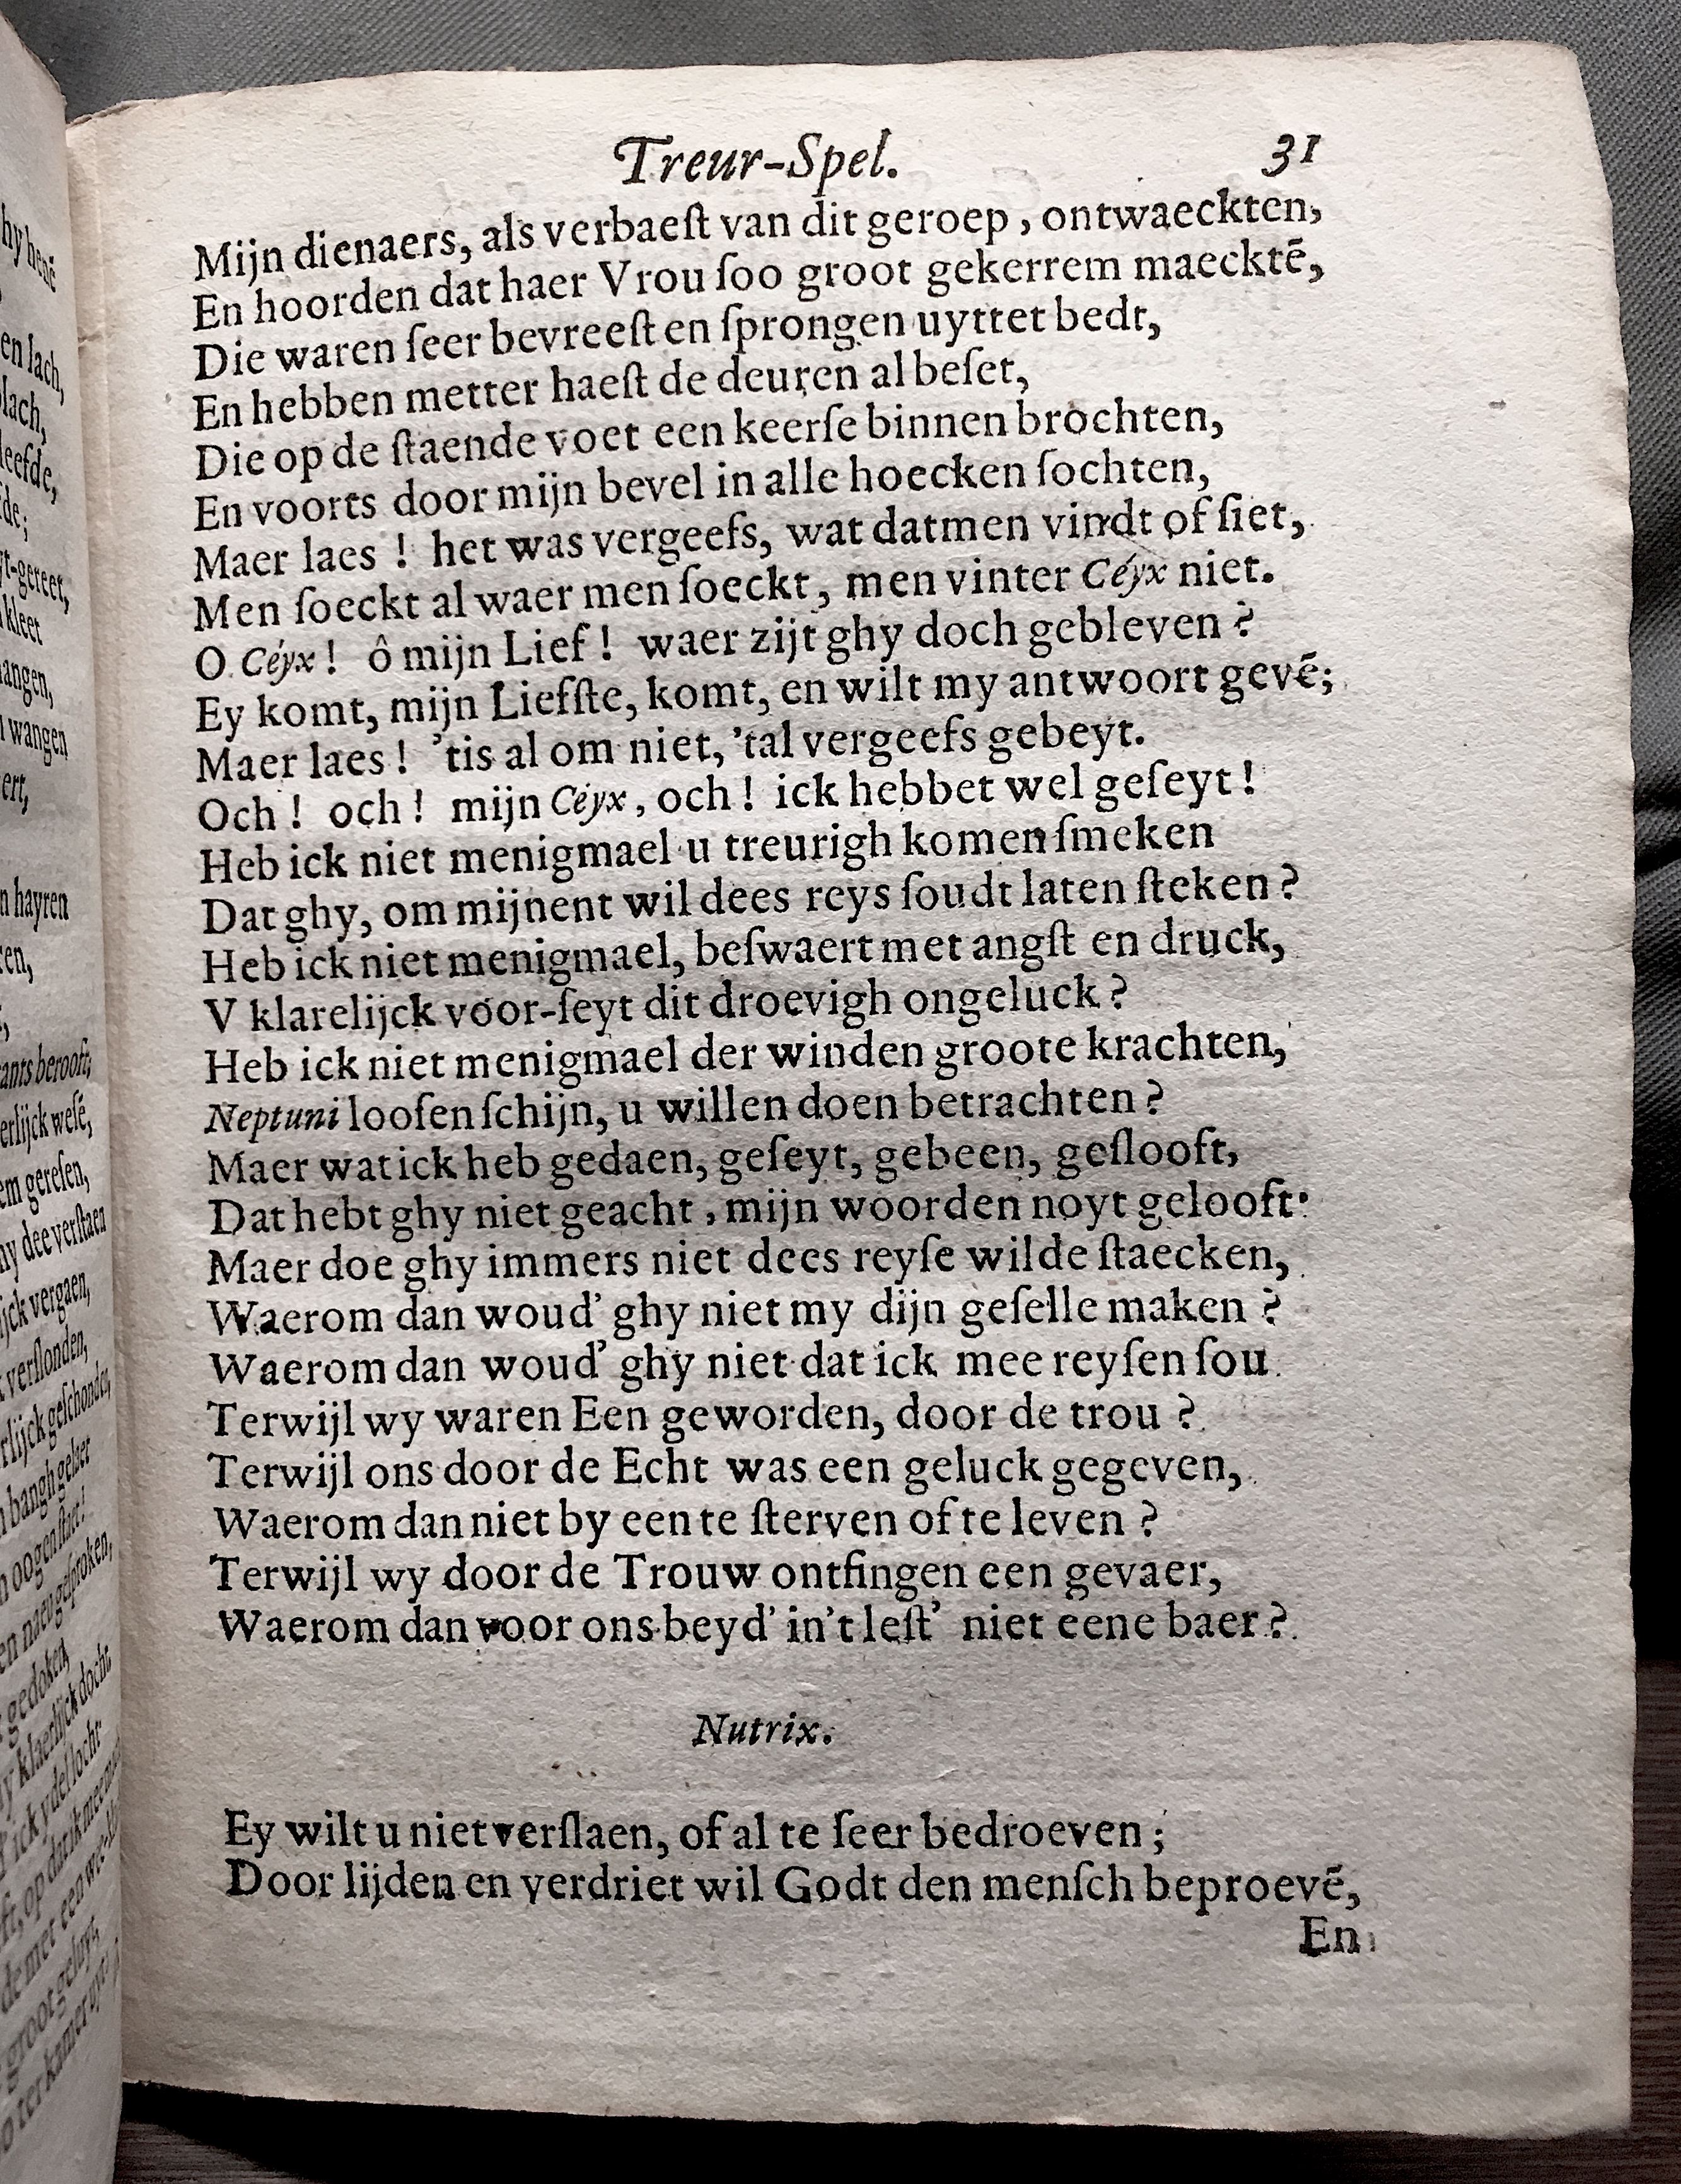 Treur-Spel. 31
Mijn dienaers, als verbaeſt van dit geroep, ontwaeckten,
En hoorden dat haer Vrou ſoo groot gekerrem maecktē,
Die waren ſeer bevreeſt en ſprongen uyttet bedt,
En hebben metter haeſt de deuren al beſet,
Die op de ſtaende voet een keerſe binnen brochten,
En voorts door mijn bevel in alle hoecken ſochten,
Maer laes ! het was vergeefs, wat datmen vindt of ſiet,
Men ſoeckt al waer men ſoeckt, men vinter Céyx niet.
O Céyx ! ô mijn Lief ! waer zijt ghy doch gebleven ?
Ey komt, mijn Liefſte, komt, en wilt my antwoort gevē;
Maer laes ! 'tis al om niet, 'tal vergeefs gebeyt.
Och ! och ! mijn Céyx, och ! ick hebbet wel geſeyt !
Heb ick niet menigmael u treurigh komen ſmeken
Dat ghy, om mijnent wil dees reys ſoudt laten ſteken ?
Heb ick niet menigmael, beſwaert met angſt en druck,
V klarelijck voor-ſeyt dit droevigh ongeluck ?
Heb ick niet menigmael der winden groote krachten,
Neptuni looſen ſchijn, u willen doen betrachten ?
Maer wat ick heb gedaen, geſeyt, gebeen, geſlooft,
Dat hebt ghy niet geacht, mijn woorden noyt gelooft.
Maer doe ghy immers niet dees reyſe wilde ſtaecken,
Waerom dan woud' ghy niet my dijn geſelle maken ?
Waerom dan woud' ghy niet dat ick mee reyſen ſou
Terwijl wy waren Een geworden, door de trou ?
Terwijl ons door de Echt was een geluck gegeven,
Waerom dan niet by een te ſterven of te leven ?
Terwijl wy door de Trouw ontfingen een gevaer,
Waerom dan voor ons beyd' in't leſt' niet eene baer ?
Nutrix.
Ey wilt u niet verſlaen, of al te ſeer bedroeven ;
Door lijden en verdriet wil Godt den menſch beproevē,
En